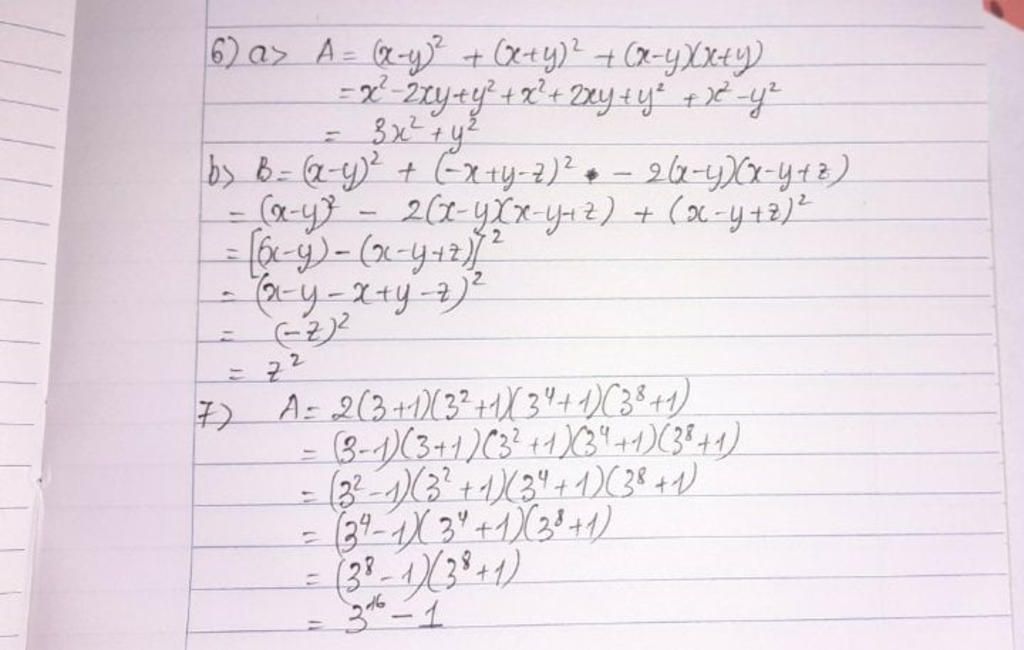 6) a> A = (x-y)² + (x+y)² + (x-y)(x+y)
= x² - 2xy + y² + x² + 2xy + y² + x² - y²
= 3x² + y²
b> B = (x-y)² + (-x+y-z)² - 2(x-y)(x-y+z)
= (x-y)² - 2(x-y)(x-y+z) + (x-y+z)²
= [(x-y) - (x-y+z)]²
= (x-y-x+y-z)²
= (-z)²
= z²
7) A = 2(3+1)(3²+1)(3⁴+1)(3⁸+1)
= (3-1)(3+1)(3²+1)(3⁴+1)(3⁸+1)
= (3²-1)(3²+1)(3⁴+1)(3⁸+1)
= (3⁴-1)(3⁴+1)(3⁸+1)
= (3⁸-1)(3⁸+1)
= 3¹⁶ - 1